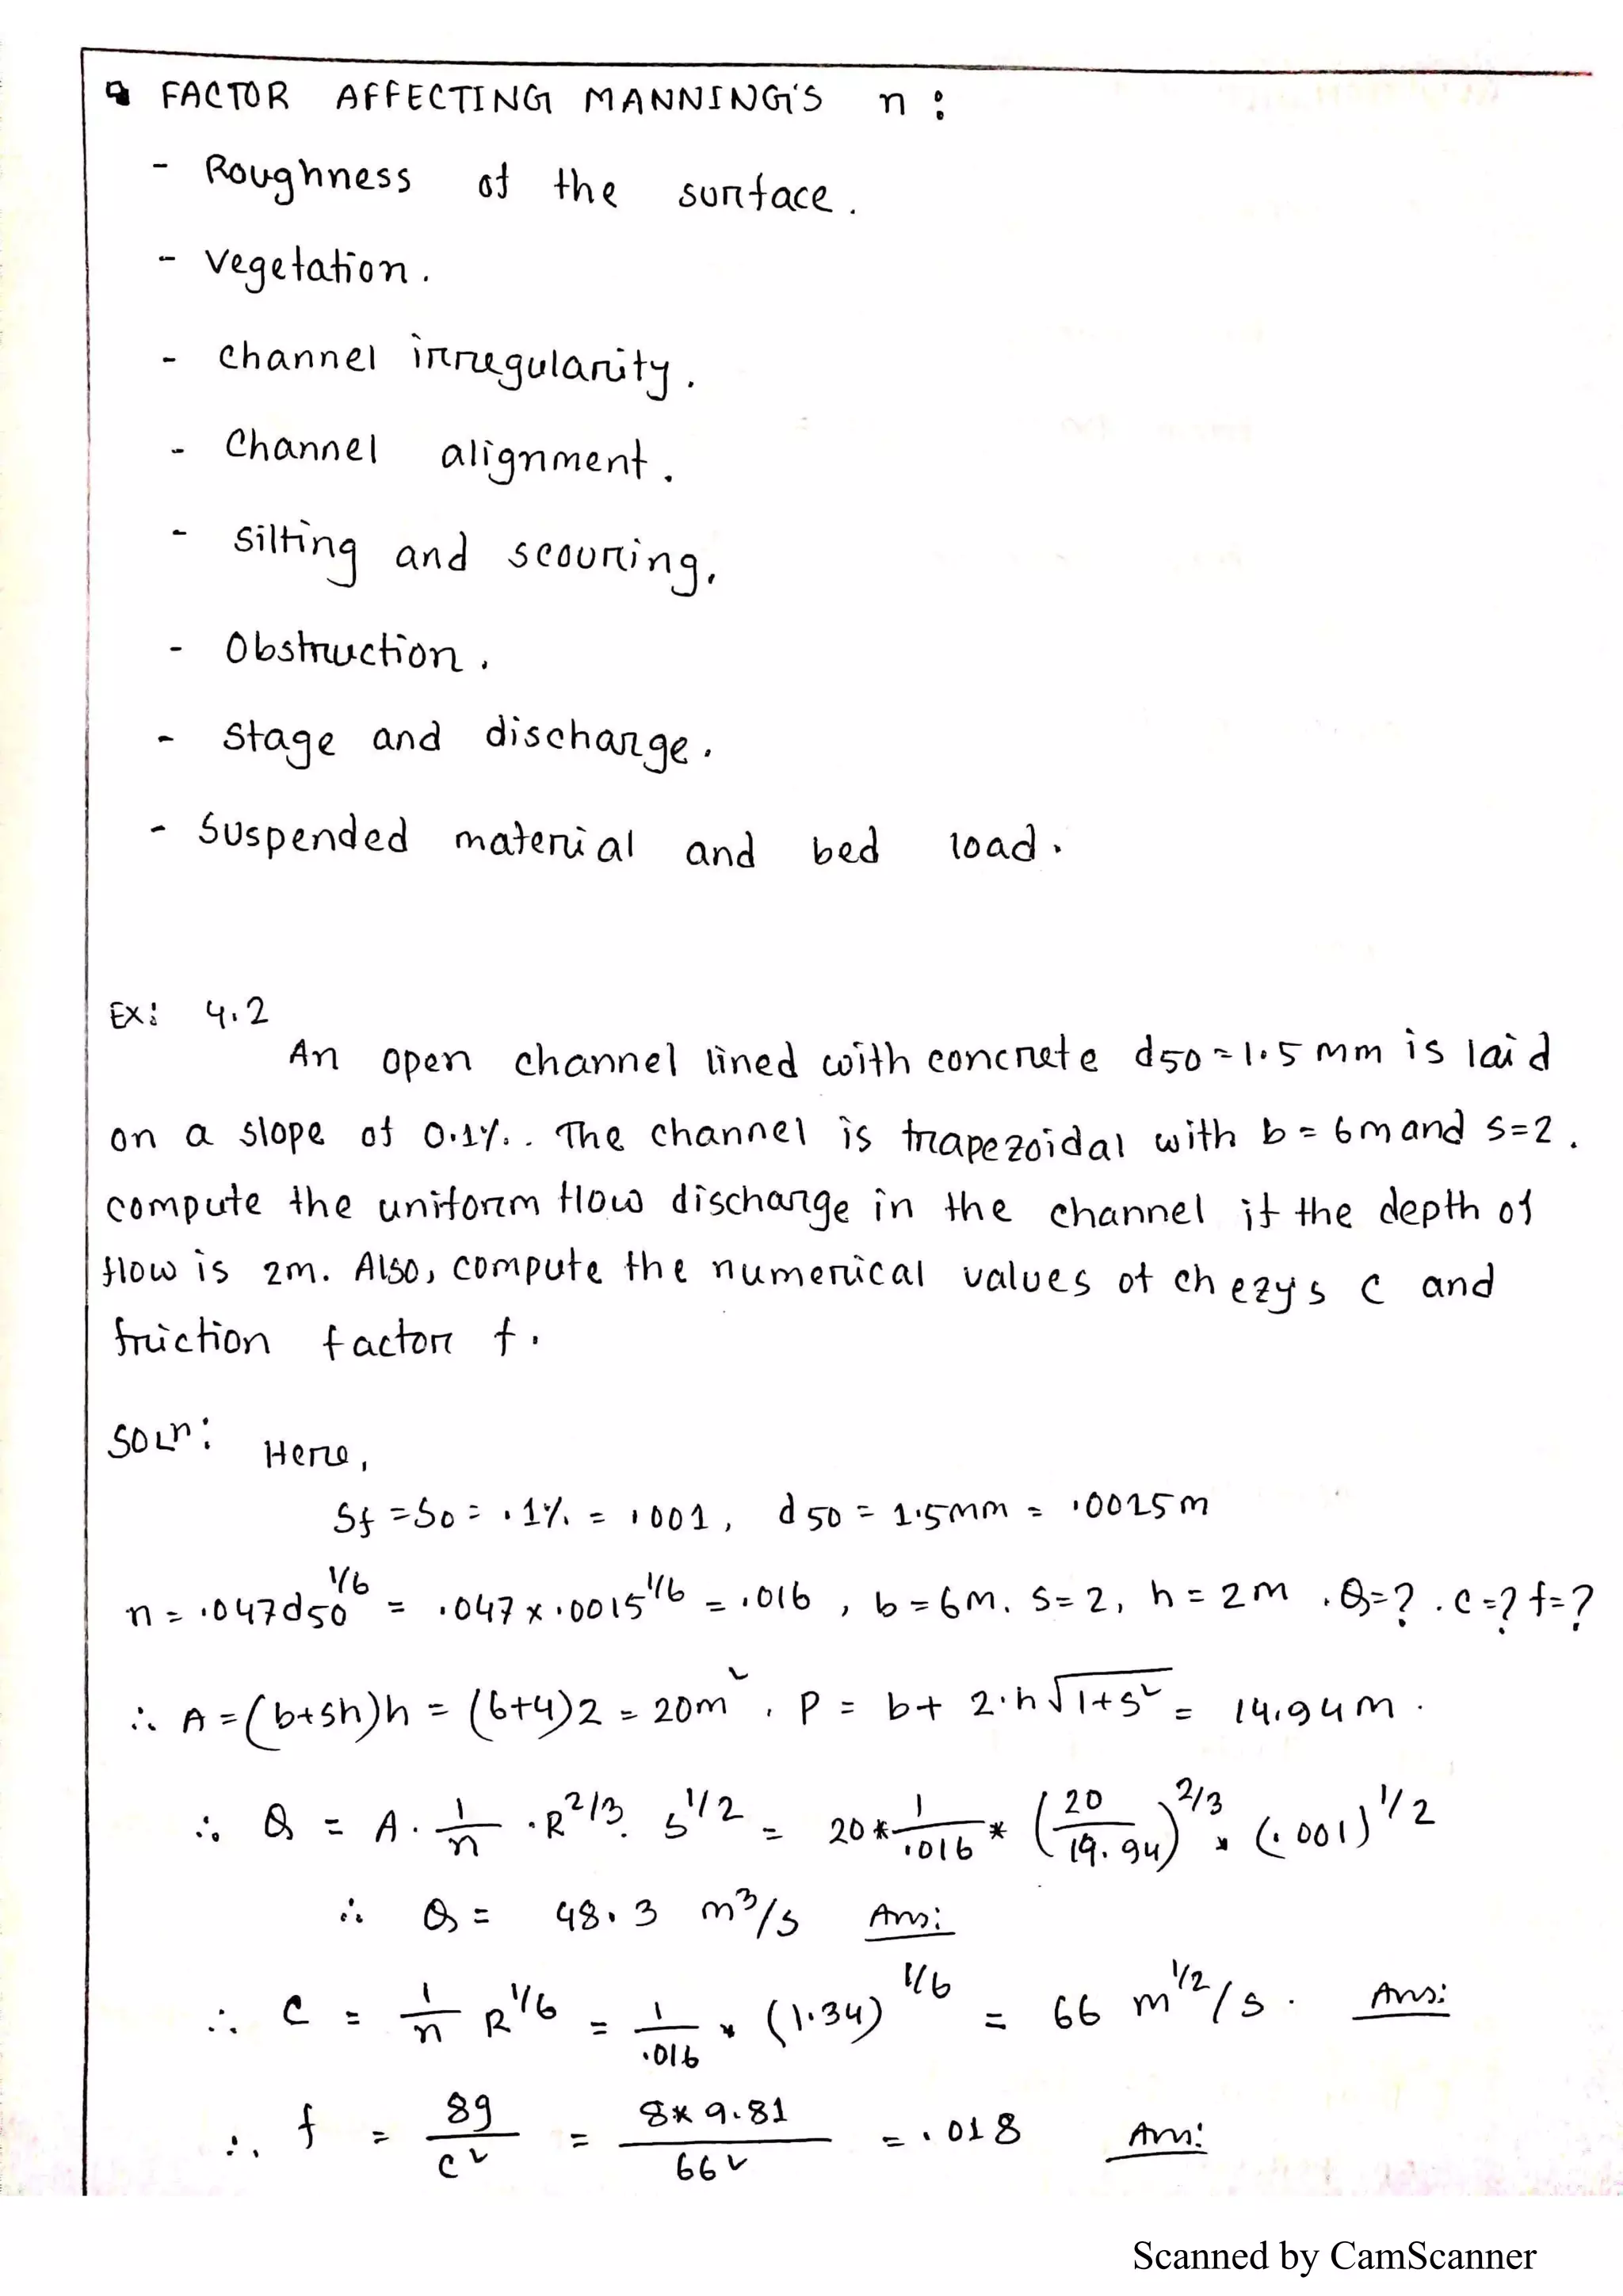 FACTOR AFFECTING MANNING'S n :
- Roughness of the surface.
- Vegetation.
- Channel irregularity.
- Channel alignment.
- Silting and scouring.
- Obstruction.
- Stage and discharge.
- Suspended material and bed load.
Ex: 4.2
An open channel lined with concrete d50 = 1.5 mm is laid
on a slope of 0.1%. . The channel is trapezoidal with b = 6m and s=2.
compute the uniform flow discharge in the channel if the depth of
flow is 2m. Also, compute the numerical values of chezys C and
friction factor f.
Soln: Here,
Sf = So = .1% = .001, d50 = 1.5mm = .0015m
n = .047d50^1/6 = .047 x .0015^1/6 = .016, b = 6m. S = 2, h = 2m . Q=? . C=? f=?
∴ A = (b+sh)h = (6+4)2 = 20m², P = b + 2.h√1+s² = 14.94m.
∴ Q = A . 1/n . R^2/3 . S^1/2 = 20 * 1/.016 * (20/19.94)^2/3 * (.001)^1/2
∴ Q = 48.3 m³/s Ans:
∴ C = 1/n R^1/6 = 1/.016 * (1.34)^1/6 = 66 m^1/2/s. Ans:
∴ f = 8g/c² = 8*9.81/66² = .018 Ans:
Scanned by CamScanner